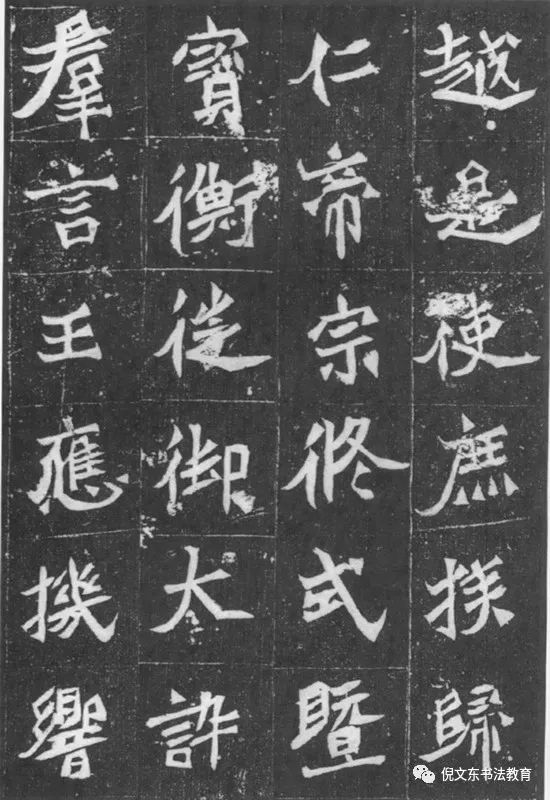 越是使庶族歸
仁帝宗攸式暨
寶衡徙御大訊
羣言王應機響
倪文东书法教育